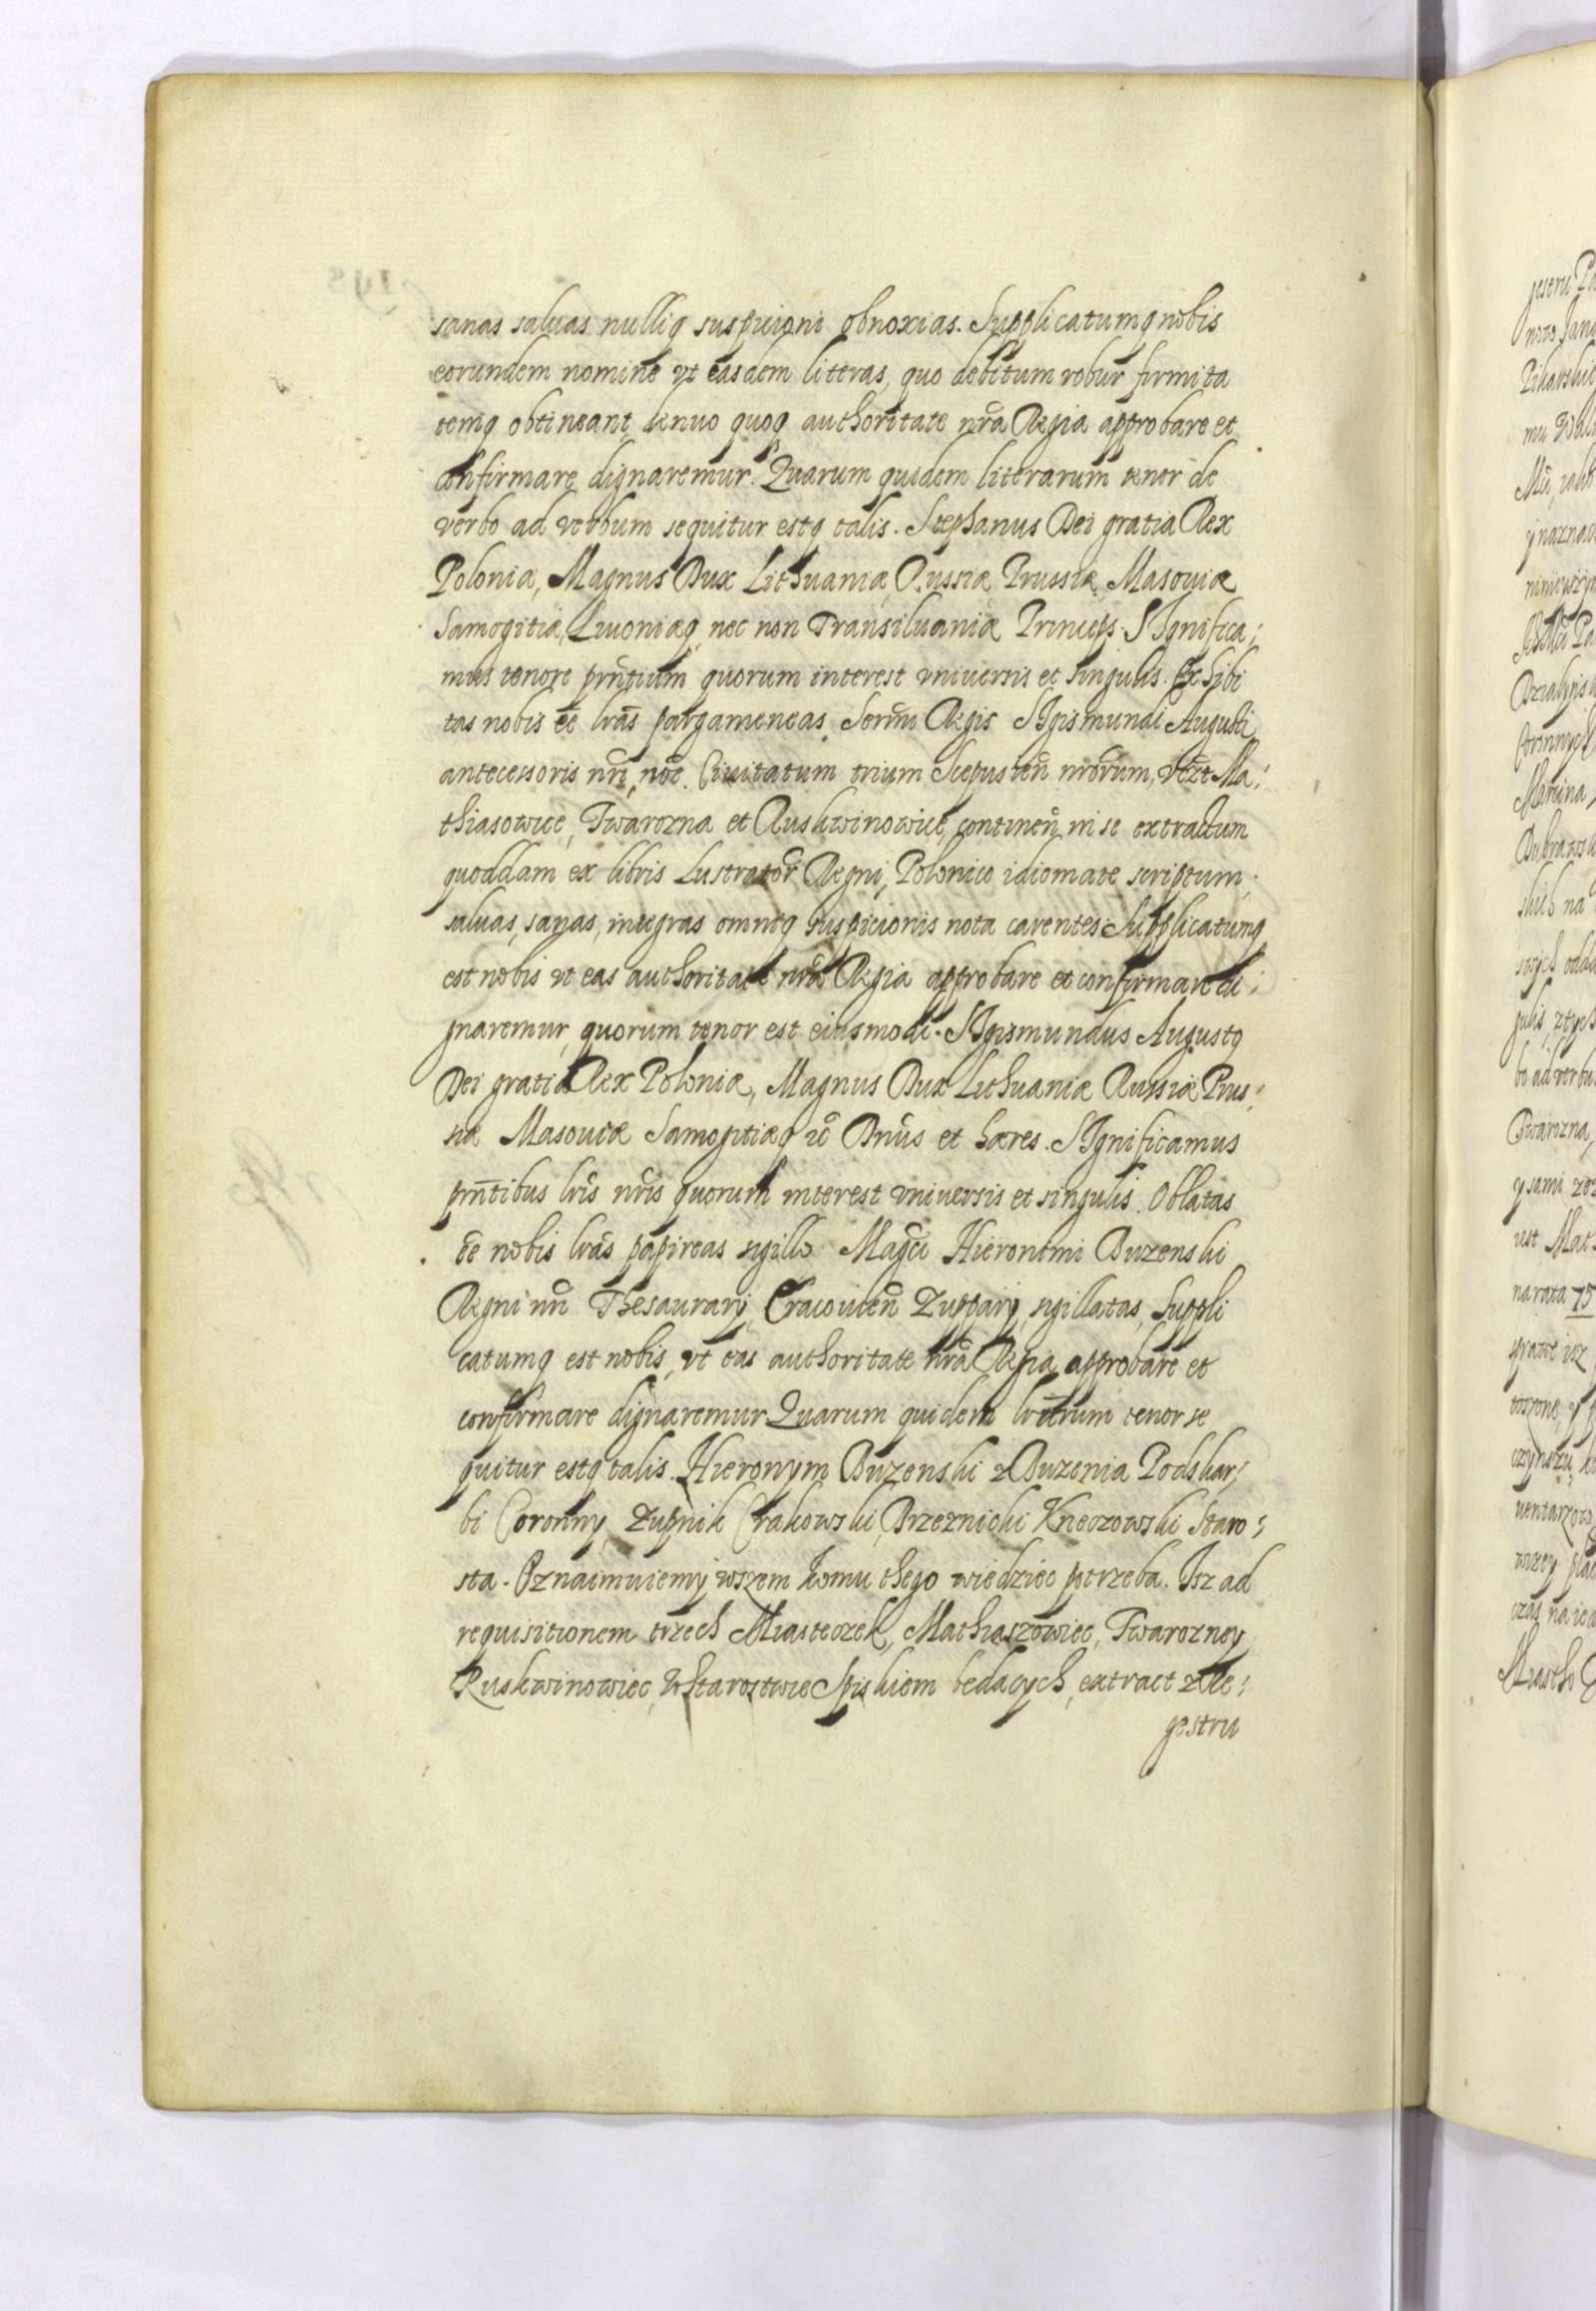 sanas saluas nulliq suspicioni obnoxias. Supplicatumq nobis
eorundem nomine vt easdem literas, quo debitum robur firmita
temq obtineant denuo quoq authoritate nrã Regia approbare et
confirmare dignaremur. Quarum quidem literarum tenor de
verbo ad verbum sequitur estq talis. Stephanus Dei gratia Rex
Poloniæ, Magnus Dux Lithuaniæ, Russiæ, Prussiæ, Masouiæ
Samogitiæ, Liuoniæq nec non Transiluaniæ Princeps. SIgnifica;
mus tenore prñtium quorum interest vniuersis et singulis. Exhibi
tas nobis eẽ lrãs pargameneas Serñi Regis SIgismundi Augusti
antecessoris nrĩ, noẽ Ciuitatum trium Scepusieñ nrõrum, vẽzt Ma;
thiasowice, Twarozna et Ruskwinowice, contineñ in se extractum
quoddam ex libris Lustratoř Regni, Polonico idiomate scriptum,
saluas, sanas, integras omniq suspicionis nota carentes. Supplicatumq
est nobis vt eas authoritate nrã Regia approbare et confirmare di;
gnaremur, quorum tenor est eiusmodi. SIgismundus Augustq
Dei gratia Rex Poloniæ, Magnus Dux Lithuaniæ Russiæ Prus;
siæ Masouiæ Samogitiæq zc̃ Dnũs et hæres. SIgnificamus
prñtibus lrĩs nrĩs quorum interest vniuersis et singulis. Oblatas
eẽ nobis lrãs papireas sigillo Magcĩ Hieronimi Buzenski
Regni nrĩ Thesaurarij, Cracouieñ Zupparij, sigillatas, Suppli
catumq est nobis, vt eas authoritate nrã Regia approbare et
confirmare dignaremur. Quarum quidem lrãrum tenor se
quitur estq talis. Hieronym Buzenski z Buzenia Podskar;
bi Coronny, Zupnik Crakowski, Brzeznicki Kneczowski Staro;
sta. Oznaimuiemy wszem komu thego wiedziec potrzeba. Isz ad
requisitionem trzech Miasteczek, Mathiaszowiec, Twarozney
Ruskwinowiec, W Starostwie Spiskiem bedacych, extract z Re;
gestru